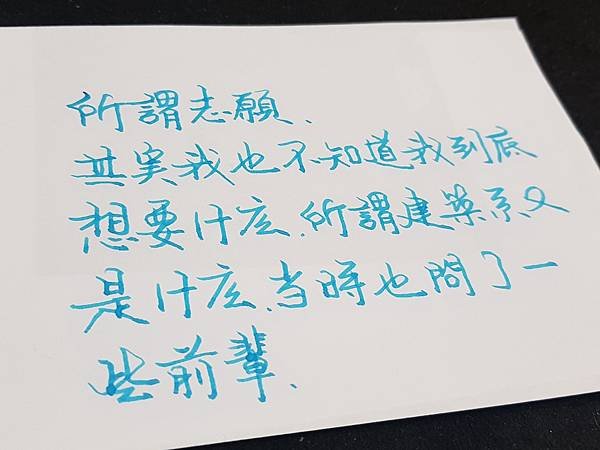 所謂志願、
其实我也不知道我到底
想要什庅、所謂建築系又
是什庅、当時也問了一
些前輩、